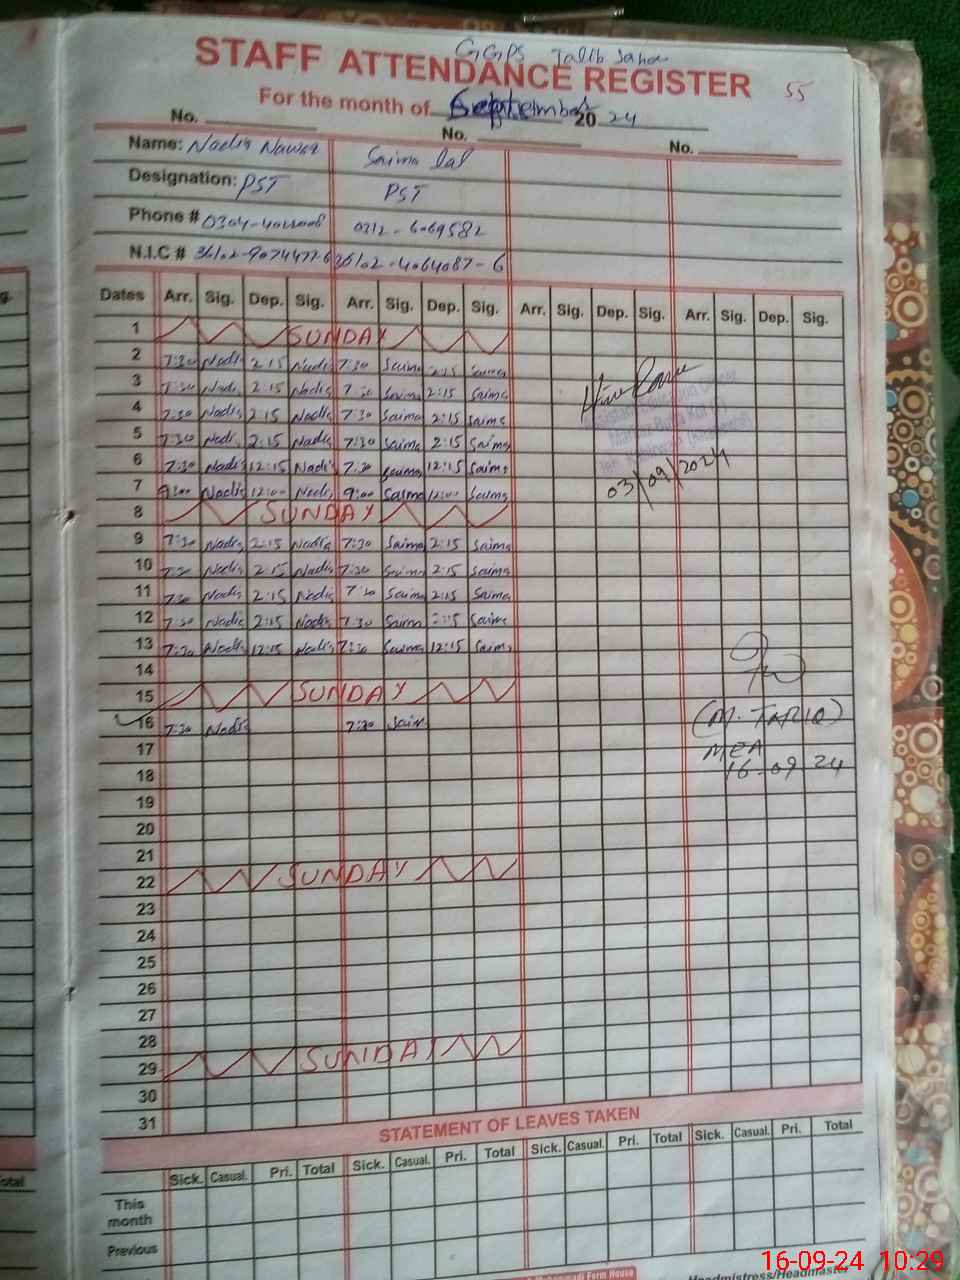 GGPS Talib Sahoo
STAFF ATTENDANCE REGISTER 55
For the month of September 20 24
No. No. No.
Name: Nadia Nawaz Saima Lal
Designation: PST PST
Phone # 0312-6069582
N.I.C # 36102-4064087-6
Dates Arr. Sig. Dep. Sig. Arr. Sig. Dep. Sig. Arr. Sig. Dep. Sig. Arr. Sig. Dep. Sig.
1 SUNDAY
2 7:30 Nadia 2:15 Nadia 7:30 Saima 2:15 Saima
3 7:30 Nadia 2:15 Nadia 7:30 Saima 2:15 Saima
4 7:30 Nadia 2:15 Nadia 7:30 Saima 2:15 Saima
5 7:30 Nadia 2:15 Nadia 7:30 Saima 2:15 Saima
6 7:30 Nadia 12:15 Nadia 7:30 Saima 12:15 Saima
7 9:00 Nadia 12:00 Nadia 9:00 Saima 12:00 Saima
Assistant Education Officer
03/09/2024
8 SUNDAY
9 7:30 Nadia 2:15 Nadia 7:30 Saima 2:15 Saima
10 7:30 Nadia 2:15 Nadia 7:30 Saima 2:15 Saima
11 7:30 Nadia 2:15 Nadia 7:30 Saima 2:15 Saima
12 7:30 Nadia 2:15 Nadia 7:30 Saima 2:15 Saima
13 7:30 Nadia 12:15 Nadia 7:30 Saima 12:15 Saima
14
15 SUNDAY
16 7:30 Nadia 7:30 Saim
(M. TARIQ)
MEA
16-09 24
17
18
19
20
21
22 SUNDAY
23
24
25
26
27
28
29 SUNDAY
30
31
STATEMENT OF LEAVES TAKEN
Sick. Casual. Pri. Total Sick. Casual. Pri. Total Sick. Casual. Pri. Total Sick. Casual. Pri. Total
This month
Previous
Form House
Headmistress/Headmaster
16-09-24 10:29